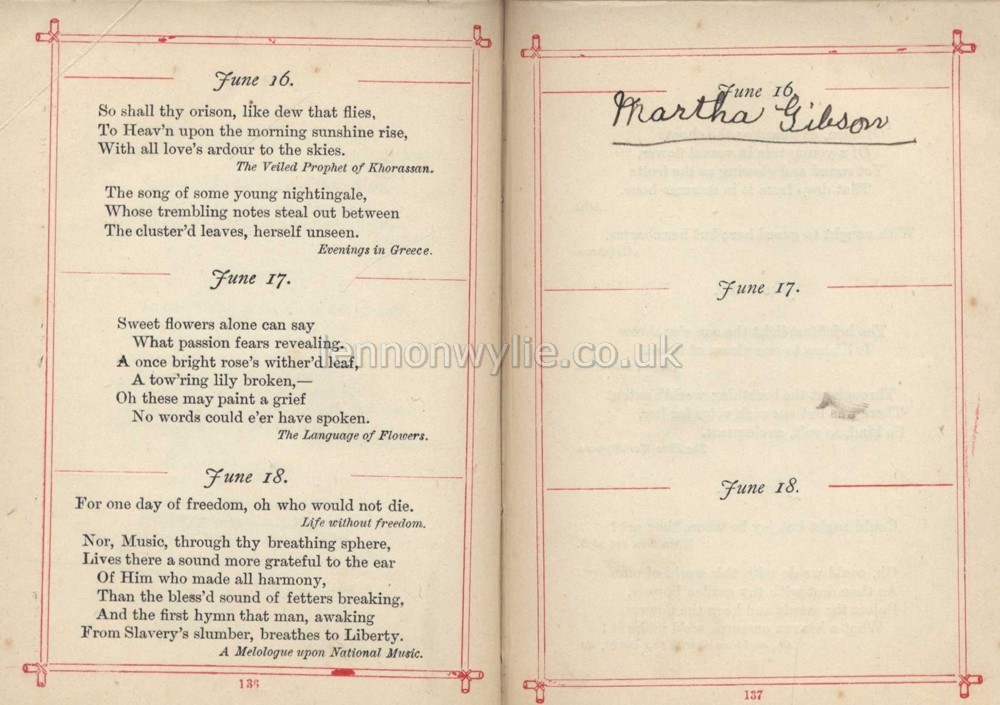 June 16.
So shall thy orison, like dew that flies,
To Heav'n upon the morning sunshine rise,
With all love's ardour to the skies.
The Veiled Prophet of Khorassan.
The song of some young nightingale,
Whose trembling notes steal out between
The cluster'd leaves, herself unseen.
Evenings in Greece.
June 17.
Sweet flowers alone can say
What passion fears revealing.
A once bright rose's wither'd leaf,
A tow'ring lily broken,—
Oh these may paint a grief
No words could e'er have spoken.
The Language of Flowers.
June 18.
For one day of freedom, oh who would not die.
Life without freedom.
Nor, Music, through thy breathing sphere,
Lives there a sound more grateful to the ear
Of Him who made all harmony,
Than the bless'd sound of fetters breaking,
And the first hymn that man, awaking
From Slavery's slumber, breathes to Liberty.
A Melologue upon National Music.
136
June 16.
Martha Gibson
June 17.
June 18.
137
lennonwylie.co.uk